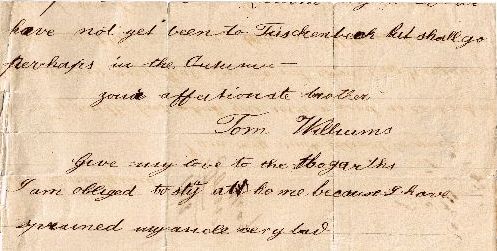 have not yet been to Tuschenbeck but shall go
perhaps in the Autumn —
your affectionate brother
Tom Williams
Give my love to the Hogarths
I am obliged to sty at home because I have
sprained my ancle very bad